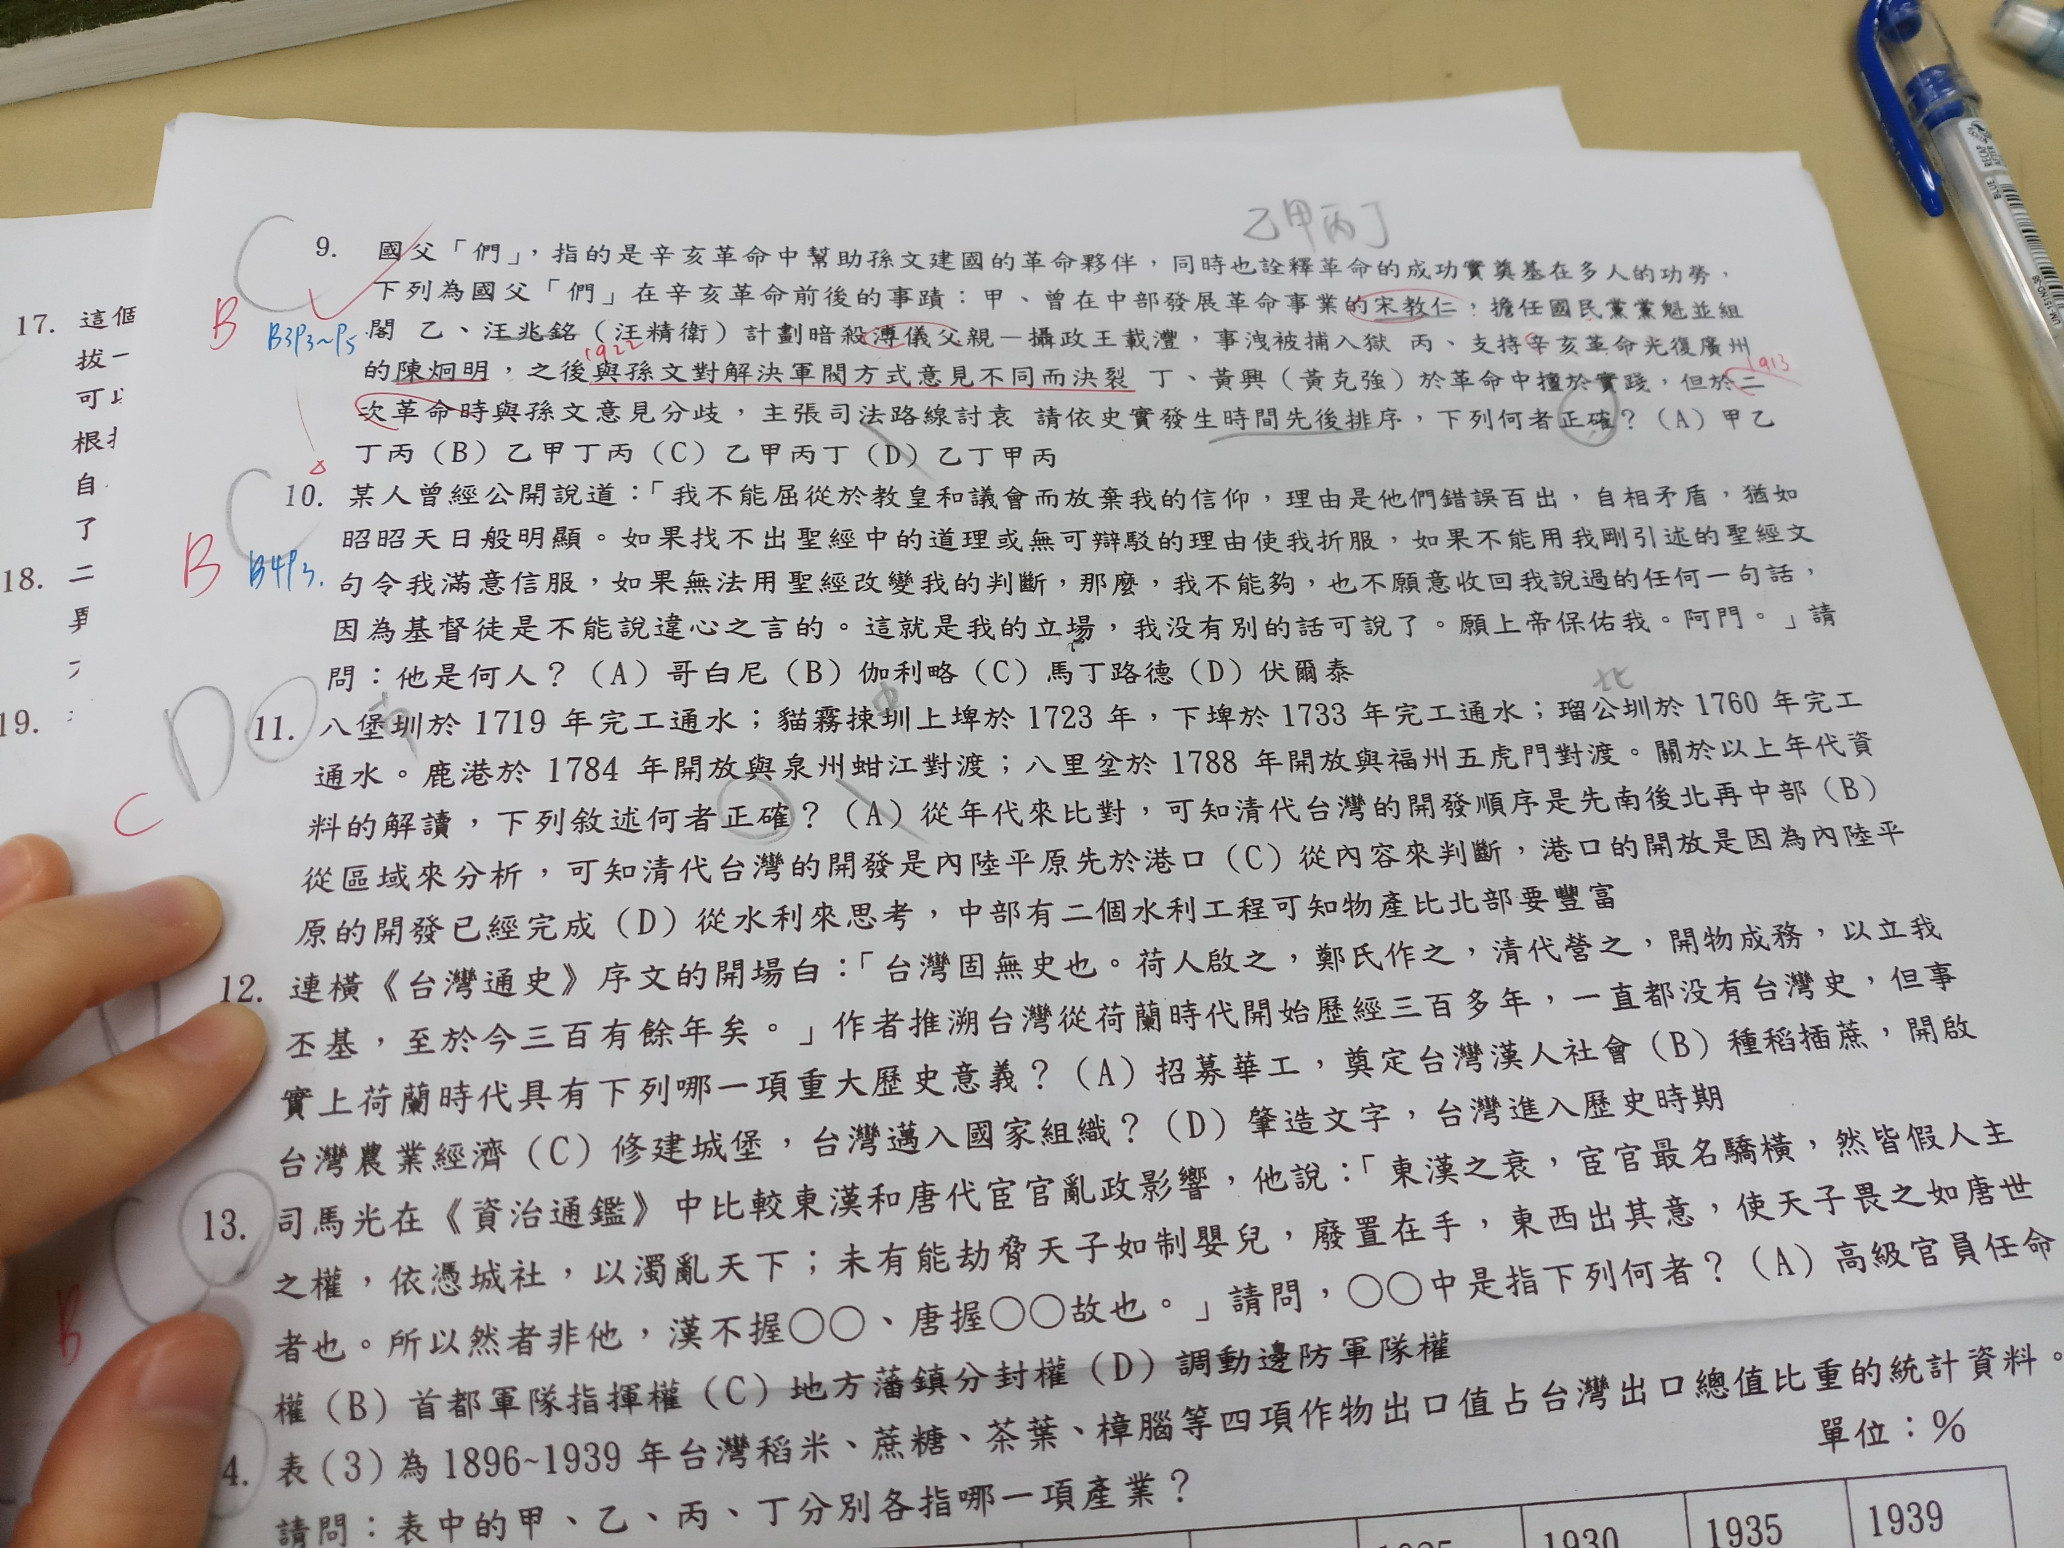 乙甲丙丁
C
9. 國父「們」，指的是辛亥革命中幫助孫文建國的革命夥伴，同時也詮釋革命的成功實奠基在多人的功勞，
下列為國父「們」在辛亥革命前後的事蹟：甲、曾在中部發展革命事業的宋教仁，擔任國民黨黨魁並組
B
B3P3~P5
閣 乙、汪兆銘（汪精衛）計劃暗殺溥儀父親－攝政王載灃，事洩被捕入獄 丙、支持辛亥革命光復廣州
1922
1913
的陳炯明，之後與孫文對解決軍閥方式意見不同而決裂 丁、黃興（黃克強）於革命中擅於實踐，但於二
次革命時與孫文意見分歧，主張司法路線討袁 請依史實發生時間先後排序，下列何者正確？（A）甲乙
丁丙（B）乙甲丁丙（C）乙甲丙丁（D）乙丁甲丙
C
10. 某人曾經公開說道：「我不能屈從於教皇和議會而放棄我的信仰，理由是他們錯誤百出，自相矛盾，猶如
昭昭天日般明顯。如果找不出聖經中的道理或無可辯駁的理由使我折服，如果不能用我剛引述的聖經文
B
B4P3.
句令我滿意信服，如果無法用聖經改變我的判斷，那麼，我不能夠，也不願意收回我說過的任何一句話，
因為基督徒是不能說違心之言的。這就是我的立場，我没有別的話可說了。願上帝保佑我。阿門。」請
問：他是何人？（A）哥白尼（B）伽利略（C）馬丁路德（D）伏爾泰
中
北
D
11. 八堡圳於 1719 年完工通水；貓霧捒圳上埤於 1723 年，下埤於 1733 年完工通水；瑠公圳於 1760 年完工
通水。鹿港於 1784 年開放與泉州蚶江對渡；八里坌於 1788 年開放與福州五虎門對渡。關於以上年代資
C
料的解讀，下列敘述何者正確？（A）從年代來比對，可知清代台灣的開發順序是先南後北再中部（B）
從區域來分析，可知清代台灣的開發是內陸平原先於港口（C）從內容來判斷，港口的開放是因為內陸平
原的開發已經完成（D）從水利來思考，中部有二個水利工程可知物產比北部要豐富
12. 連橫《台灣通史》序文的開場白：「台灣固無史也。荷人啟之，鄭氏作之，清代營之，開物成務，以立我
丕基，至於今三百有餘年矣。」作者推溯台灣從荷蘭時代開始歷經三百多年，一直都没有台灣史，但事
實上荷蘭時代具有下列哪一項重大歷史意義？（A）招募華工，奠定台灣漢人社會（B）種稻插蔗，開啟
台灣農業經濟（C）修建城堡，台灣邁入國家組織？（D）肇造文字，台灣進入歷史時期
13. 司馬光在《資治通鑑》中比較東漢和唐代宦官亂政影響，他說：「東漢之衰，宦官最名驕橫，然皆假人主
之權，依憑城社，以濁亂天下；未有能劫脅天子如制嬰兒，廢置在手，東西出其意，使天子畏之如唐世
B
者也。所以然者非他，漢不握○○、唐握○○故也。」請問，○○中是指下列何者？（A）高級官員任命
權（B）首都軍隊指揮權（C）地方藩鎮分封權（D）調動邊防軍隊權
4. 表（3）為 1896~1939 年台灣稻米、蔗糖、茶葉、樟腦等四項作物出口值占台灣出口總值比重的統計資料。
請問：表中的甲、乙、丙、丁分別各指哪一項產業？
單位：%
1930
1935
1939
17. 這個
拔一
可以
根
自
了
18. 二
19.